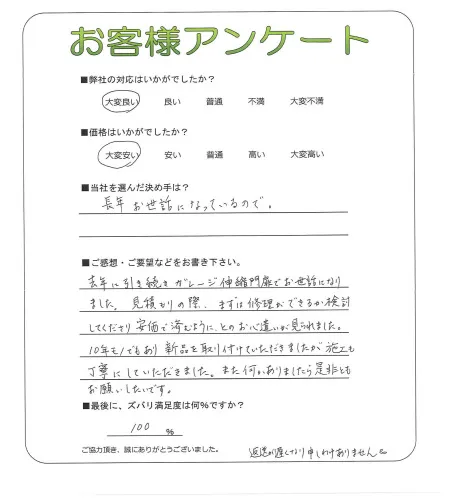 お客様アンケート
■弊社の対応はいかがでしたか？
大変良い 良い 普通 不満 大変不満
■価格はいかがでしたか？
大変安い 安い 普通 高い 大変高い
■当社を選んだ決め手は？
長年お世話になっているので。
■ご感想・ご要望などをお書き下さい。
去年に引き続きガレージ伸縮門扉でお世話になり
ました。見積もりの際、まずは修理ができるか検討
してくださり安価で済むように、とのお心遣いが見られました。
10年モノでもあり新品を取り付けていただきましたが施工も
丁寧にしていただきました。また何かありましたら是非とも
お願いしたいです。
■最後に、ズバリ満足度は何%ですか？
100 %
ご協力頂き、誠にありがとうございました。
返送が遅くなり申しわけありません